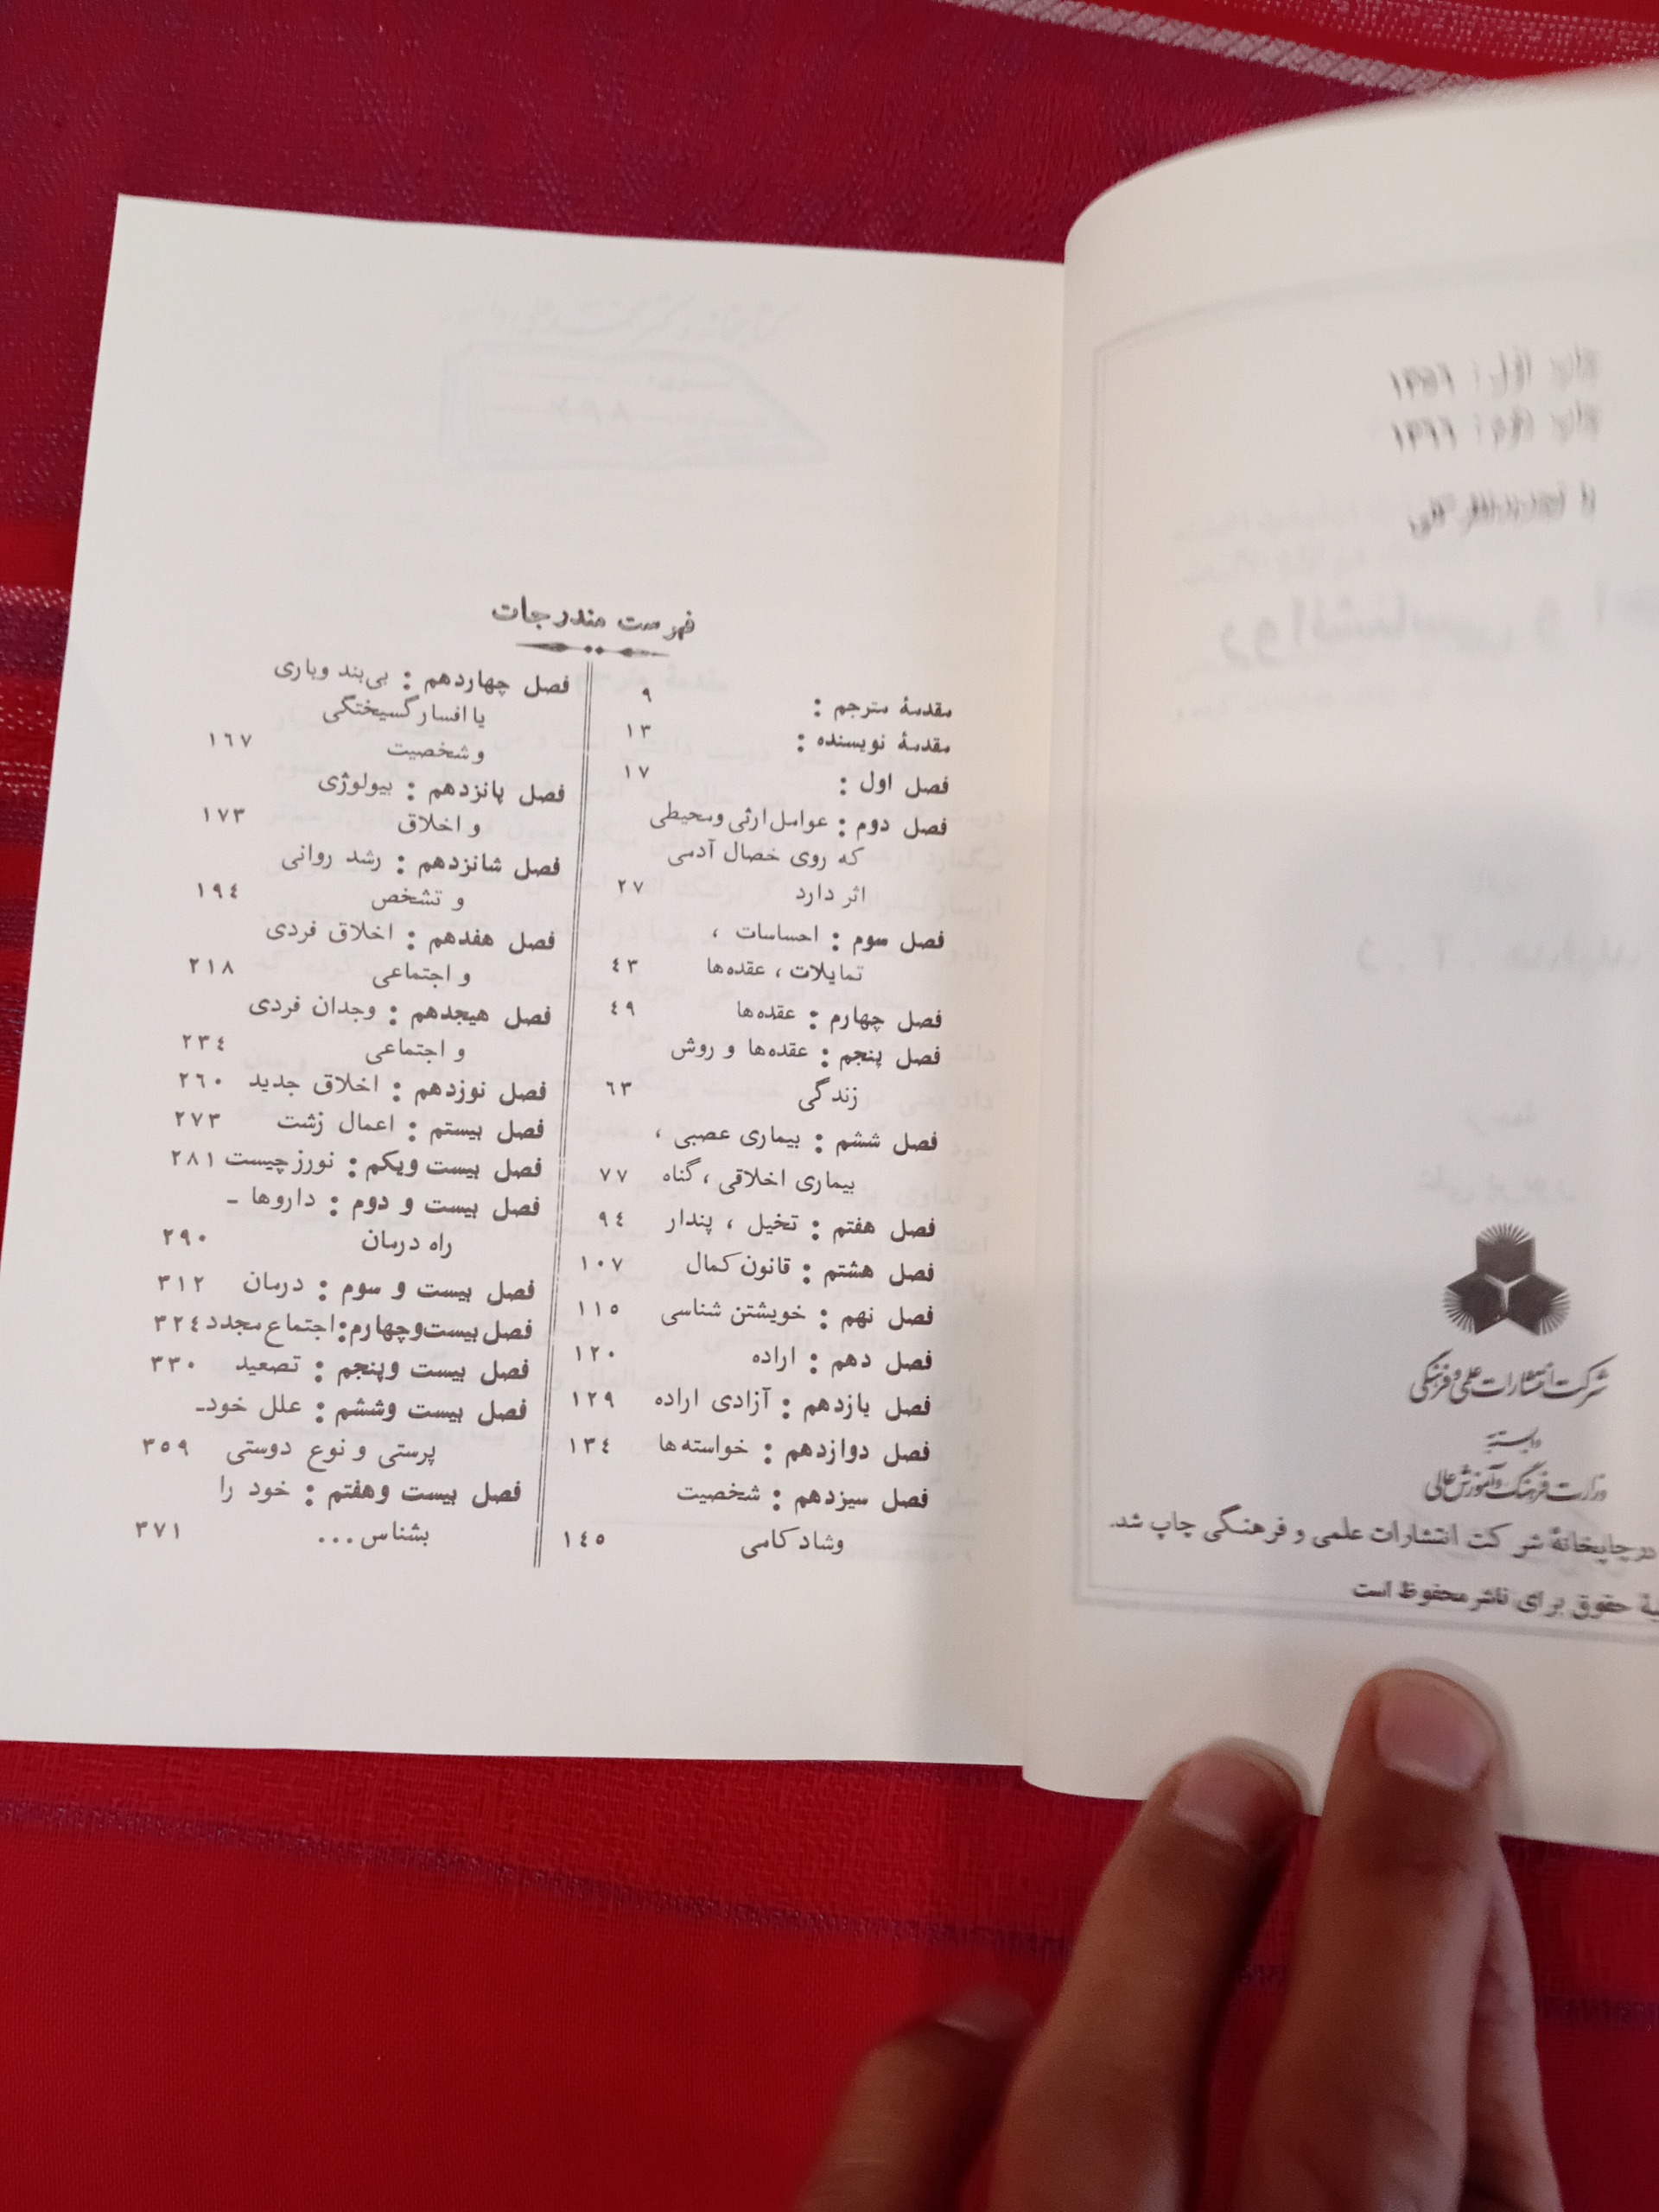 شرکت انتشارات علمی و فرهنگی
وابسته به
وزارت فرهنگ و آموزش عالی
درچاپخانهٔ شرکت انتشارات علمی و فرهنگی چاپ شد.
حقوق برای ناشر محفوظ است
فهرست مندرجات
مقدمهٔ مترجم : ۹
مقدمهٔ نویسنده : ۱۳
فصل اول : ۱۷
فصل دوم : عوامل ارثی و محیطی
که روی خصال آدمی
اثر دارد ۲۷
فصل سوم : احساسات ،
تمایلات ، عقده‌ها ٤۳
فصل چهارم : عقده‌ها ٤۹
فصل پنجم : عقده‌ها و روش
زندگی ٦۳
فصل ششم : بیماری عصبی ،
بیماری اخلاقی ، گناه ۷۷
فصل هفتم : تخیل ، پندار ۹٤
فصل هشتم : قانون کمال ۱۰۷
فصل نهم : خویشتن شناسی ۱۱٥
فصل دهم : اراده ۱۲۰
فصل یازدهم : آزادی اراده ۱۲۹
فصل دوازدهم : خواسته‌ها ۱۳٤
فصل سیزدهم : شخصیت
وشاد کامی ۱٤٥
فصل چهاردهم : بی‌بند وباری
یا افسار گسیختگی
و شخصیت ۱٦۷
فصل پانزدهم : بیولوژی
و اخلاق ۱۷۳
فصل شانزدهم : رشد روانی
و تشخص ۱۹٤
فصل هفدهم : اخلاق فردی
و اجتماعی ۲۱۸
فصل هیجدهم : وجدان فردی
و اجتماعی ۲۳٤
فصل نوزدهم : اخلاق جدید ۲٦۰
فصل بیستم : اعمال زشت ۲۷۳
فصل بیست ویکم : نورز چیست ۲۸۱
فصل بیست و دوم : داروها -
راه درمان ۲۹۰
فصل بیست و سوم : درمان ۳۱۲
فصل بیست‌وچهارم: اجتماع مجدد ۳۲٤
فصل بیست وپنجم : تصعید ۳۳۰
فصل بیست وششم : علل خود-
پرستی و نوع دوستی ۳٥۹
فصل بیست وهفتم : خود را
بشناس ... ۳۷۱